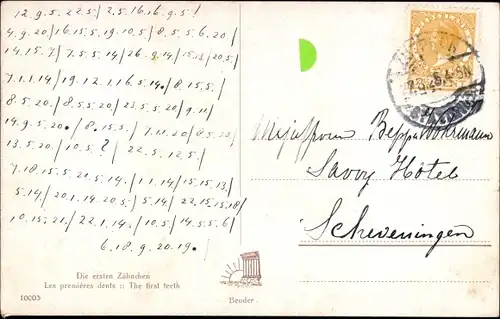 12.9.5. 22.5./ 2.5.16.16.9.5!
4.9.20/16.15.5.19.10.5/ 8.5.5.6.20/
14.15.7/ 7.5.5.14/26.9.14/15.13/20.5/
7.1.1.14/ 19.12.1.16.5.14./ 8.15.5/
8.5.20/ 8.5/5.20/ 23.5.5.20/ 9.11/
14.9.5.20./ 8.15.5/ 7.11.20/8.5.20/
13.5.20/10.5? / 22.5.12.5/
7.18.15.5.20.5.14/ 1.1.14/15.15.13/
5.14/ 20.1.14.20.5/ 5.14/ 22.15.15.18/
10.15.21/ 22.1.14./10.5/14.5.5.6/
6.18.9.20.19./
Mejuffrouw Beppy Wohrmann
Savoy Hôtel
Scheveningen
Die ersten Zähnchen
Les premières dents :: The first teeth
10003
Bender